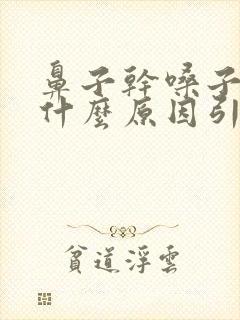 鼻子幹嗓子
什麼原因引
貧道浮雲